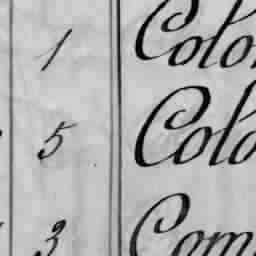 1 Colo
5 Colo
3 Com